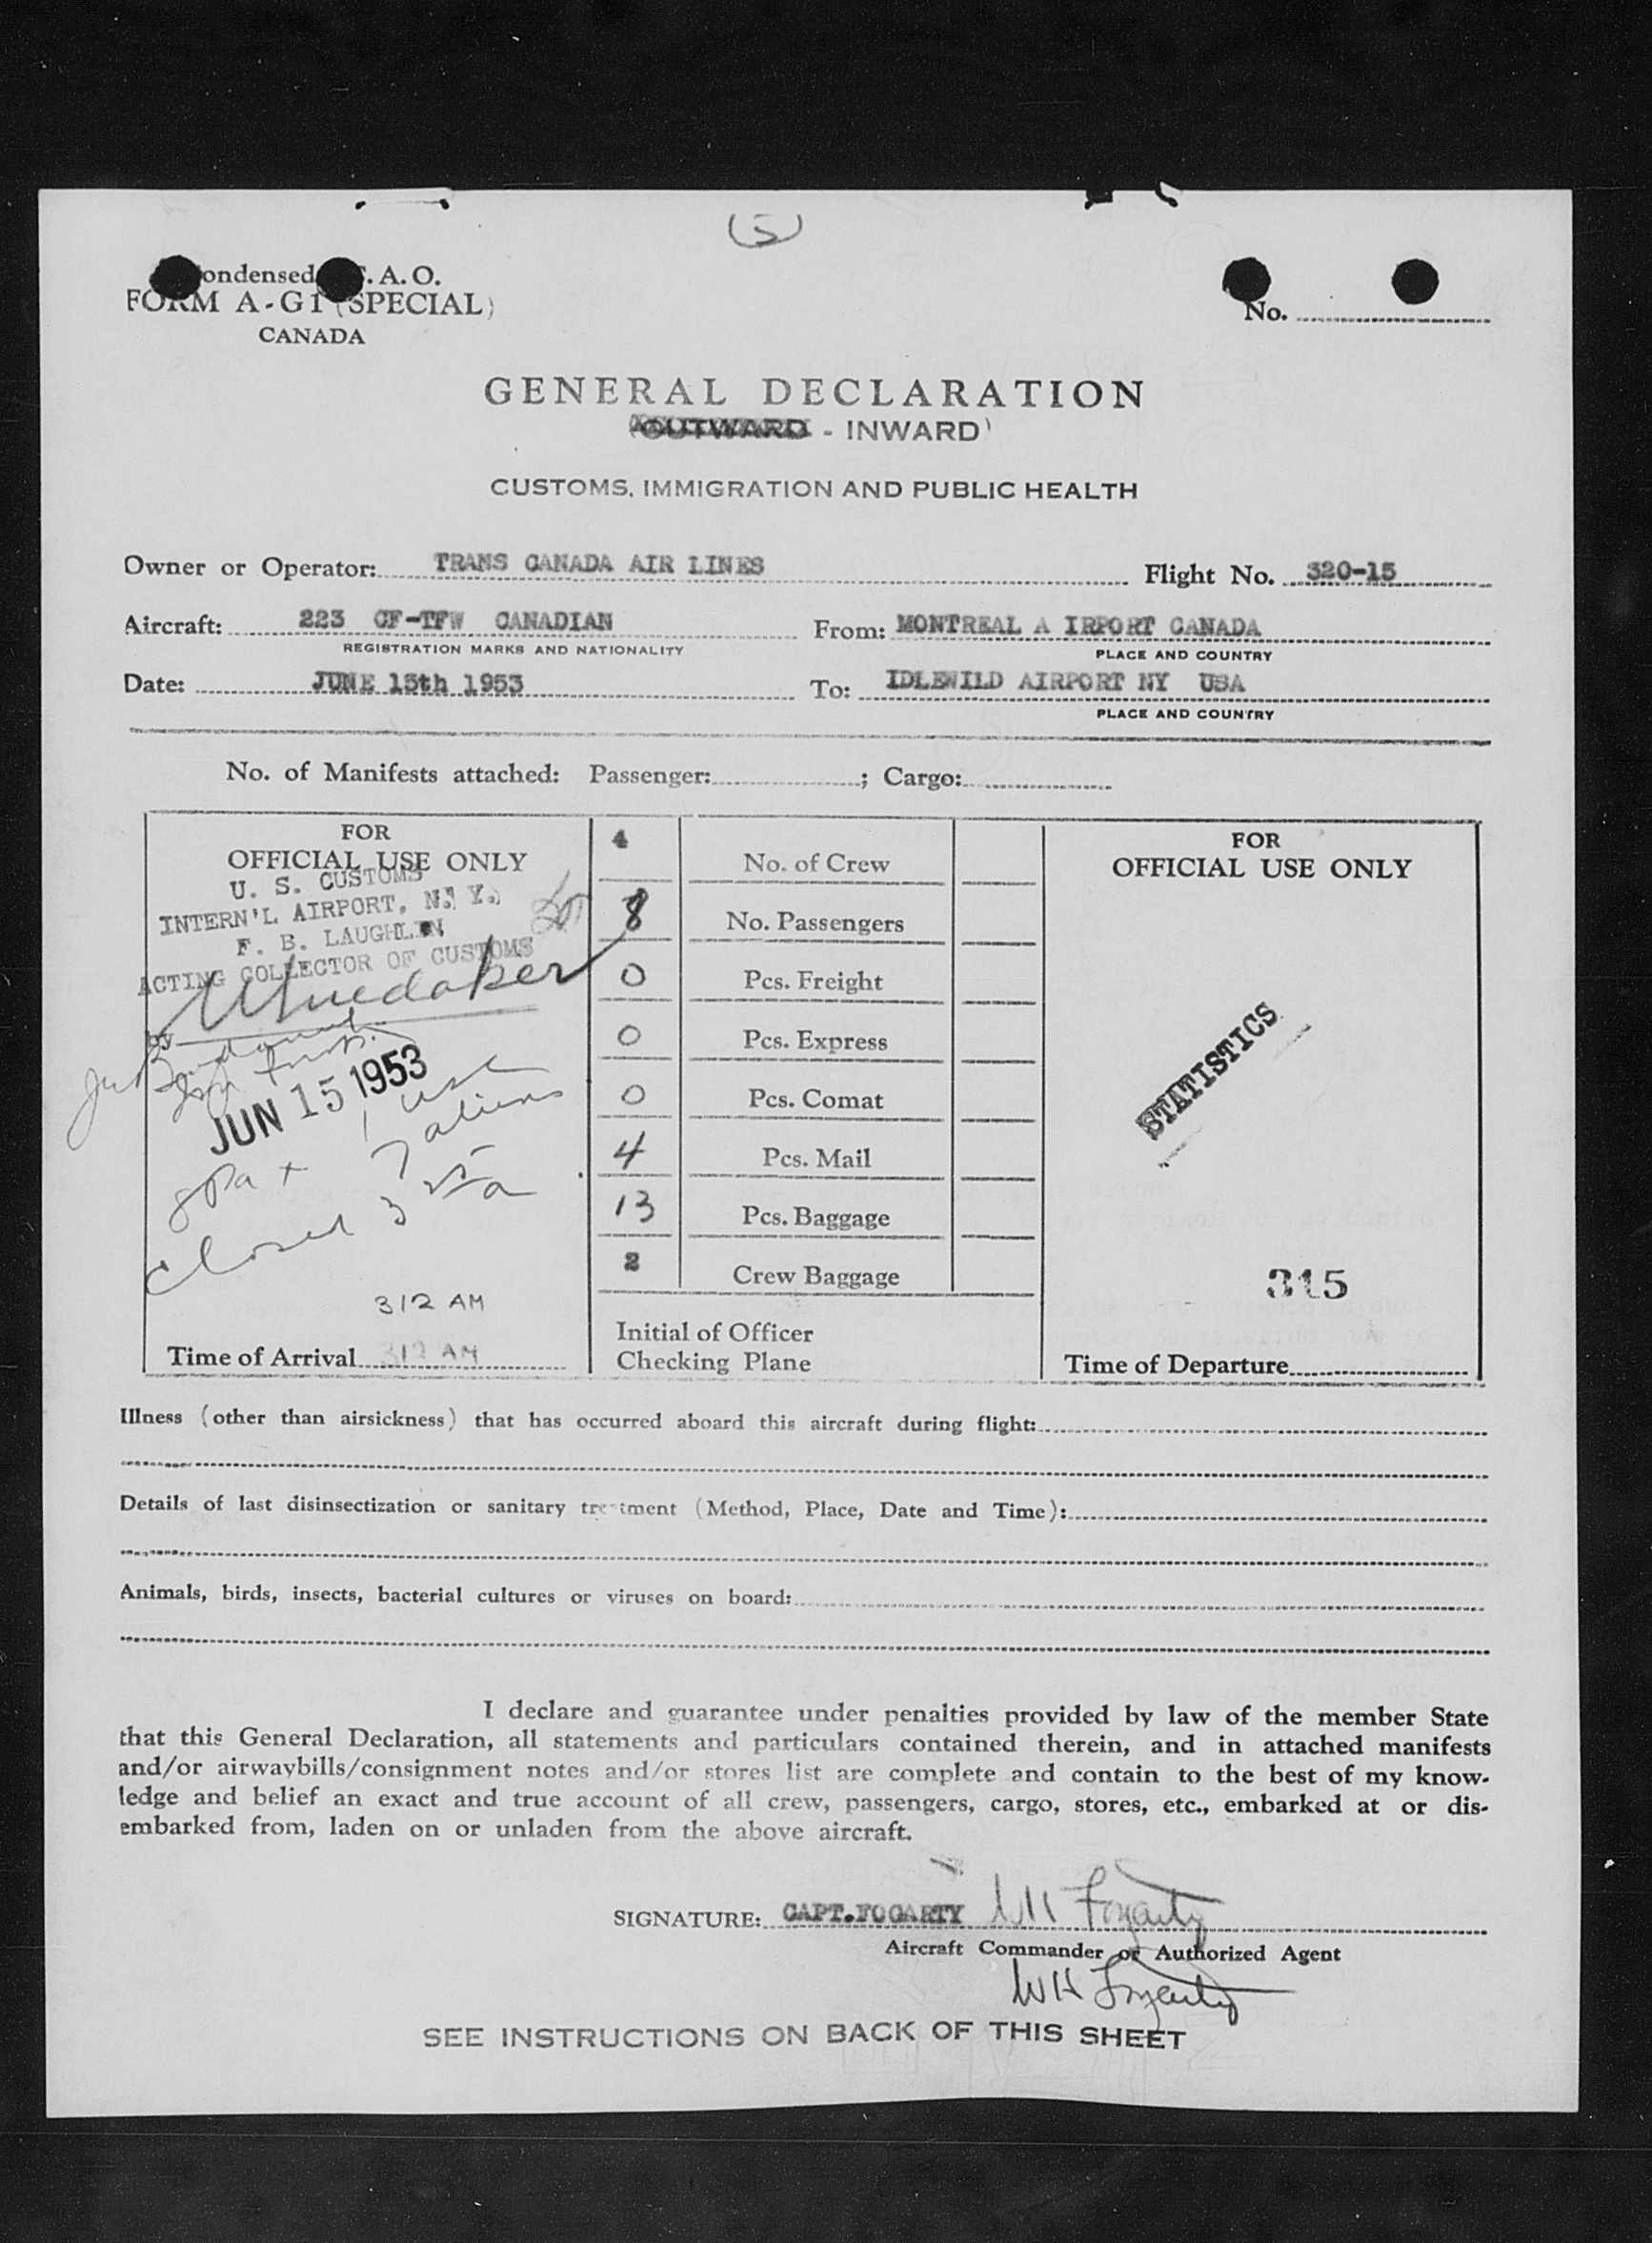 (5)
ondensed .A.O.
FORM A-G1 (SPECIAL)
CANADA
No.
GENERAL DECLARATION
(OUTWARD - INWARD)
CUSTOMS, IMMIGRATION AND PUBLIC HEALTH
Owner or Operator: TRANS CANADA AIR LINES Flight No. 320-15
Aircraft: 223 CF-TFW CANADIAN From: MONTREAL A IRPORT CANADA
REGISTRATION MARKS AND NATIONALITY PLACE AND COUNTRY
Date: JUNE 15th 1953 To: IDLEWILD AIRPORT NY USA
PLACE AND COUNTRY
No. of Manifests attached: Passenger: ; Cargo:
FOR
OFFICIAL USE ONLY
U. S. CUSTOMS
INTERN'L AIRPORT, N. Y.
F. B. LAUGHLIN
ACTING COLLECTOR OF CUSTOMS
by
JUN 15 1953
1 USC
8 Pax 7 aliens
Closed 3 25 a
312 AM
Time of Arrival 312 AM
4 No. of Crew
8 No. Passengers
0 Pcs. Freight
0 Pcs. Express
0 Pcs. Comat
4 Pcs. Mail
13 Pcs. Baggage
2 Crew Baggage
Initial of Officer
Checking Plane
FOR
OFFICIAL USE ONLY
STATISTICS
315
Time of Departure
Illness (other than airsickness) that has occurred aboard this aircraft during flight:
Details of last disinsectization or sanitary treatment (Method, Place, Date and Time):
Animals, birds, insects, bacterial cultures or viruses on board:
I declare and guarantee under penalties provided by law of the member State
that this General Declaration, all statements and particulars contained therein, and in attached manifests
and/or airwaybills/consignment notes and/or stores list are complete and contain to the best of my know-
ledge and belief an exact and true account of all crew, passengers, cargo, stores, etc., embarked at or dis-
embarked from, laden on or unladen from the above aircraft.
SIGNATURE: CAPT.FOGARTY WH Fogarty
Aircraft Commander or Authorized Agent
WH Fogarty
SEE INSTRUCTIONS ON BACK OF THIS SHEET